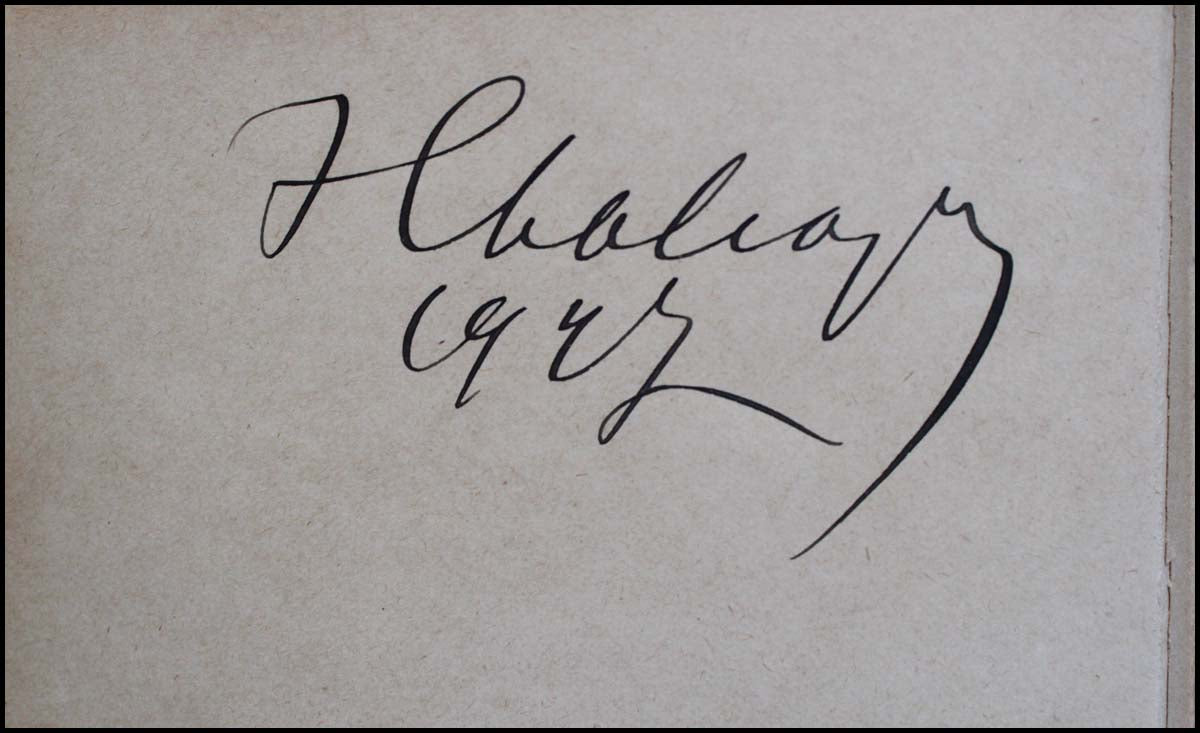 F Chaliapin
1927